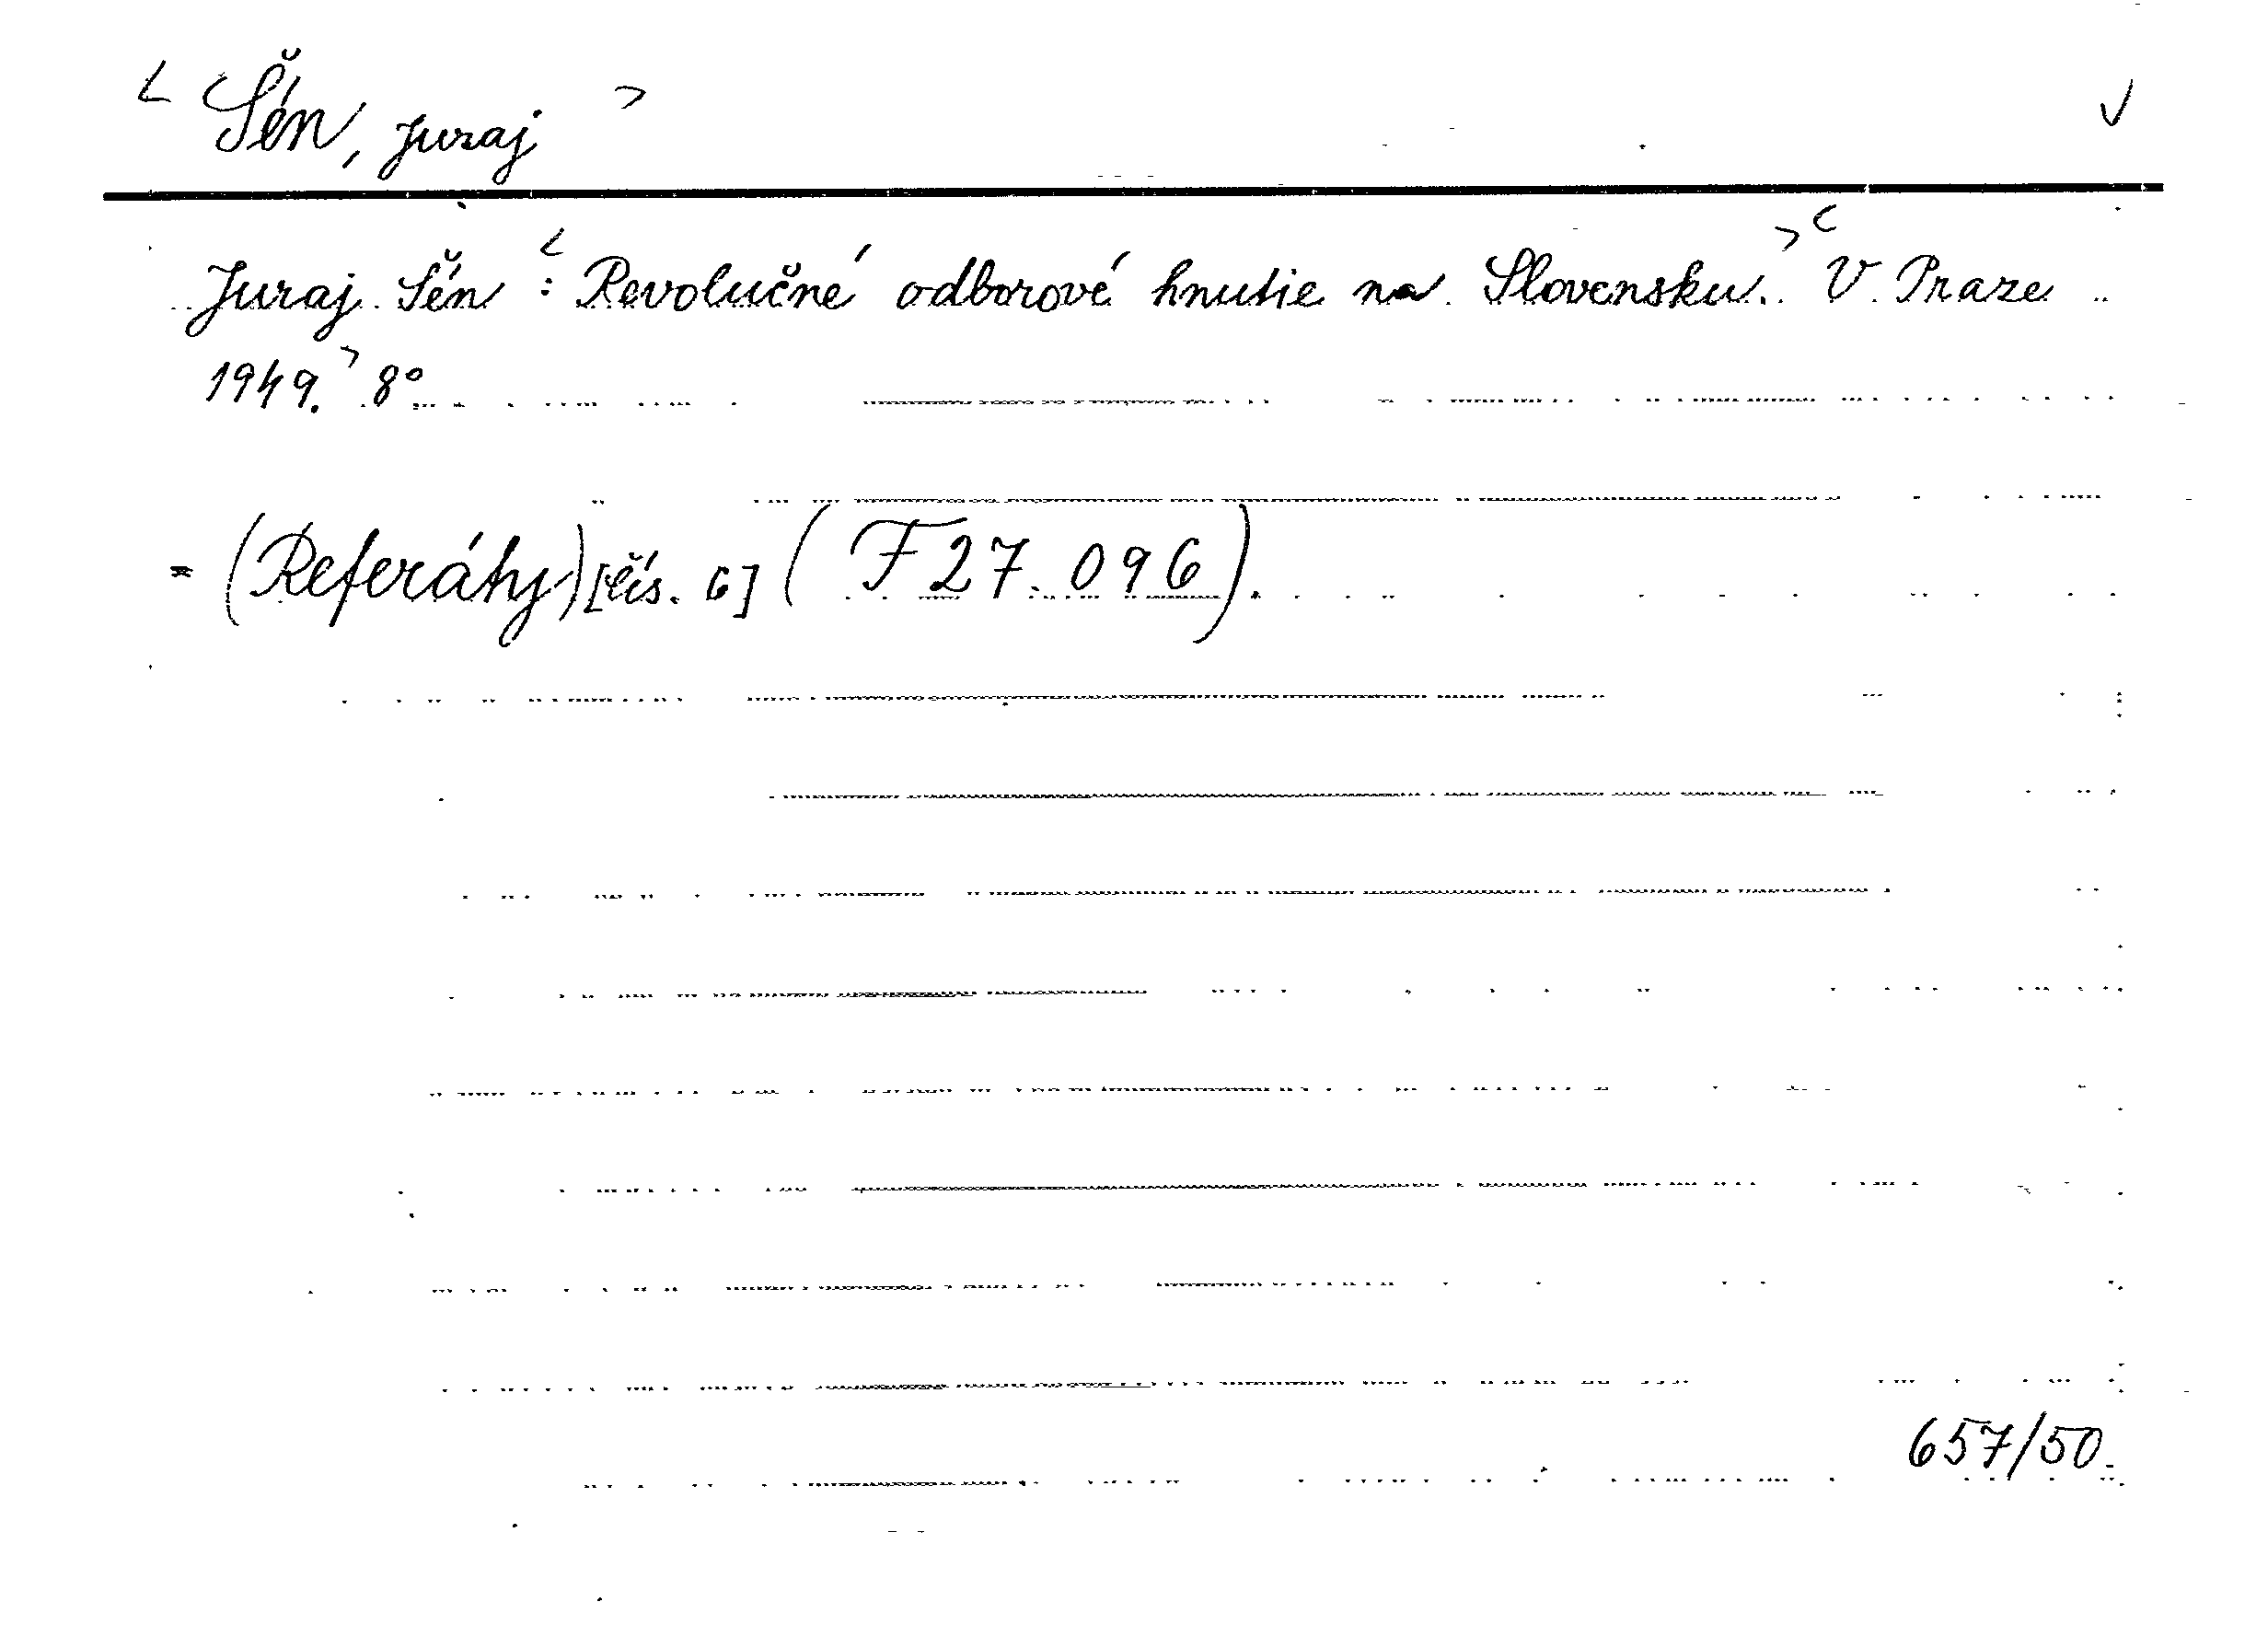 < Šén, Juraj >
Juraj Šén <: Revolučné odborové hnutie na Slovensku.> < V Praze
1949.> 8°
= (Referáty) [čís. 6] (F 27.096).
657/50